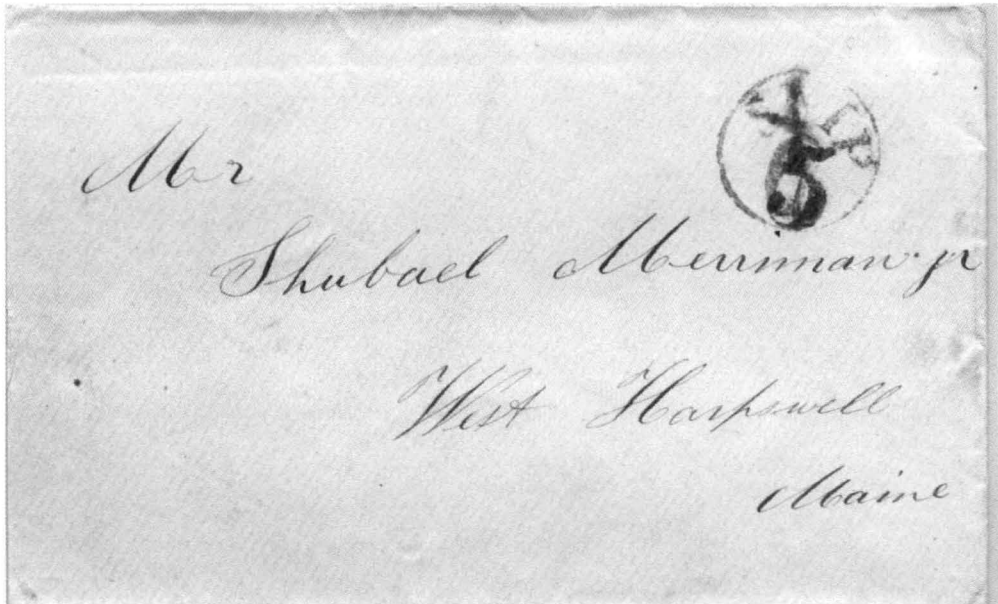 SHIP
6
Mr
Shubael Merriman jr
West Harpswell
Maine